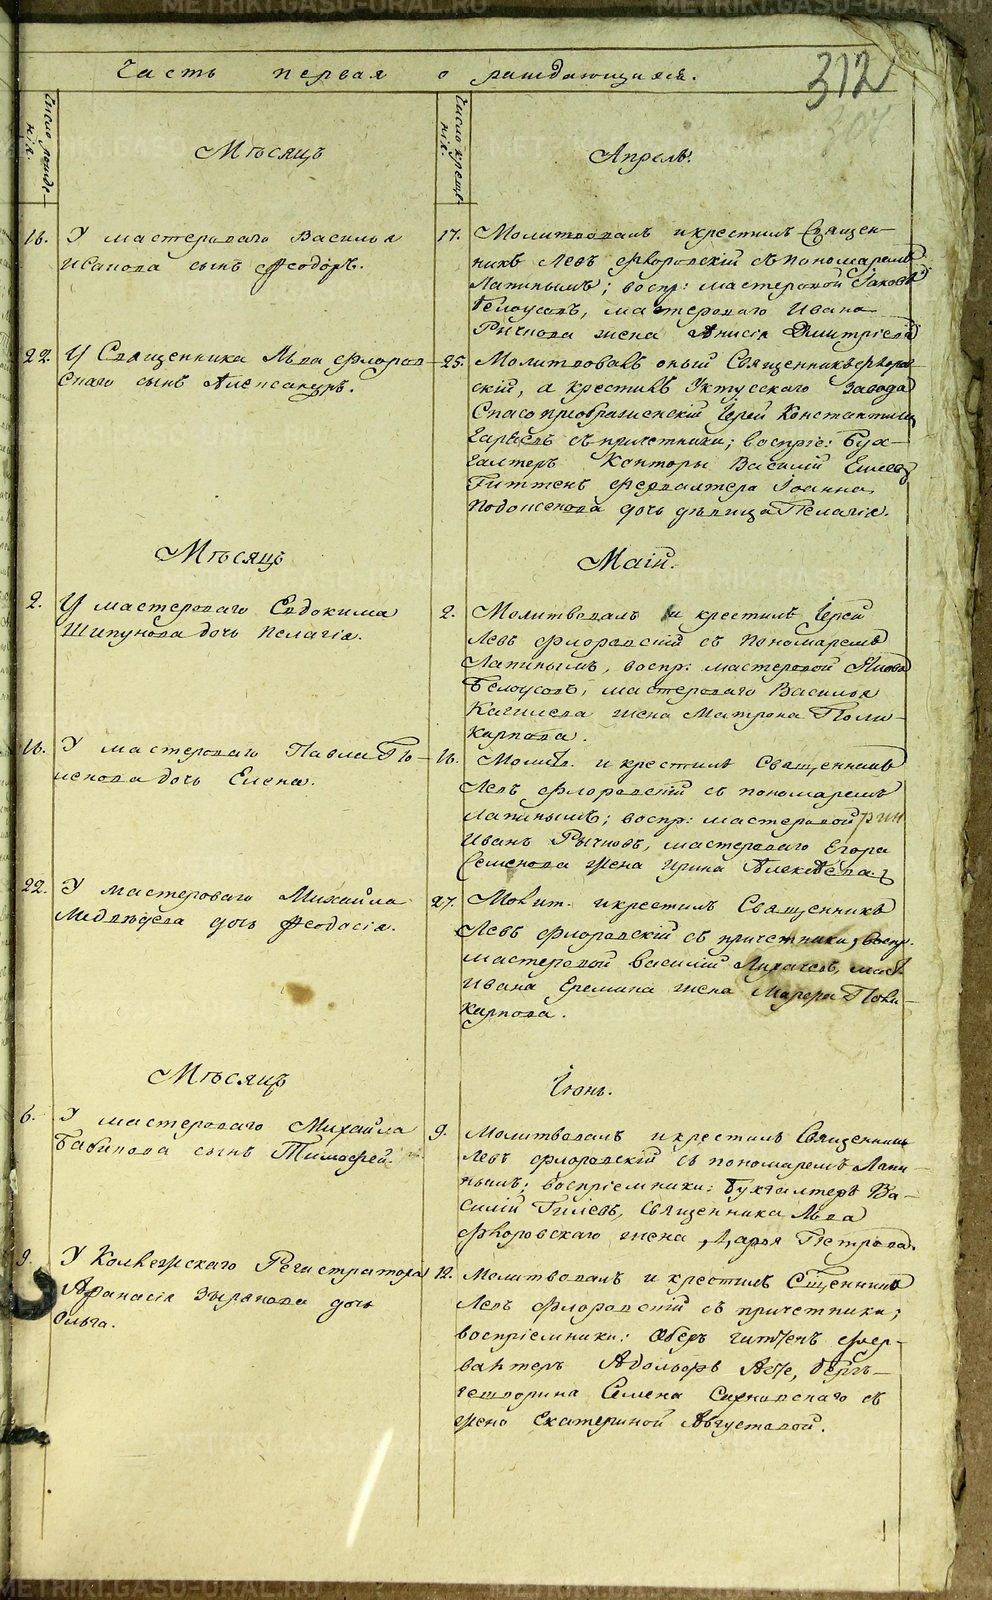 Часть первая о раждающихся.
312
Число рожде-
нія.
Мѣсяцъ
Число креще-
нія.
Апрель.
16. У мастероваго Василья
Исакова сынъ Ѳеодоръ.
17. Молитвовалъ и крестилъ Священ-
никъ Левъ Флоровскій съ пономаремъ
Лапинымъ; воспр: мастеровой Іаковъ
Белоусовъ, мастероваго Ивана
Рычкова жена Анисія Дмитріева
22. У Священника Льва Флоров-
скаго сынъ Александръ.
25. Молитвовалъ оный Священникъ Флоров-
скій, а крестилъ Уктусскаго Завода
Спасопреображенскій Іерей Константинъ
съ причетники; воспріе: Бух-
галтеръ Конторы Василій
Гиттенъ Фервалтера Іоанна
дочь дѣвица Пелагія.
Мѣсяцъ
Маій.
2. У мастероваго Евдокима
Шипунова дочь Пелагія.
2. Молитвовалъ и крестилъ Іерей
Левъ Флоровскій съ Пономаремъ
Лапинымъ, воспр: мастеровой Яковъ
Белоусовъ, мастероваго Василья
жена Матрона Поли-
карпова.
16. У мастероваго Павла По-
ленова дочь Елена.
16. Молитв. и крестилъ Священникъ
Левъ Флоровскій съ пономаремъ
Лапинымъ; воспр: мастеровой
Иванъ Рычковъ, мастероваго Егора
Семенова жена Ирина Алексѣева.
22. У мастероваго Михайла
Медвѣдева дочь Ѳеодосія.
27. Молит. и крестилъ Священникъ
Левъ Флоровскій съ причетники, воспр.
мастеровой Василій Лихачевъ, маст.
Ивана Еремина жена Марѳа Поли-
карпова.
Мѣсяцъ
Іюнь.
6. У мастероваго Михайла
Бабинова сынъ Тимофей.
9. Молитвовалъ и крестилъ Священникъ
Левъ Флоровскій съ пономаремъ Лапи-
нымъ; воспріемники: Бухгалтеръ Ва-
силій Гилевъ, Священника Льва
Флоровскаго жена Дарья Петрова.
9. У Коллежскаго Регистратора
Афанасія Зырянова дочь
Ольга.
12. Молитвовалъ и крестилъ Сщенникъ
Левъ Флоровскій съ причетники;
воспріемники: Оберъ гиттенъ фер-
валтеръ Адольфъ Бергъ-
гешворина Семена съ
жено Екатериной Августовой.